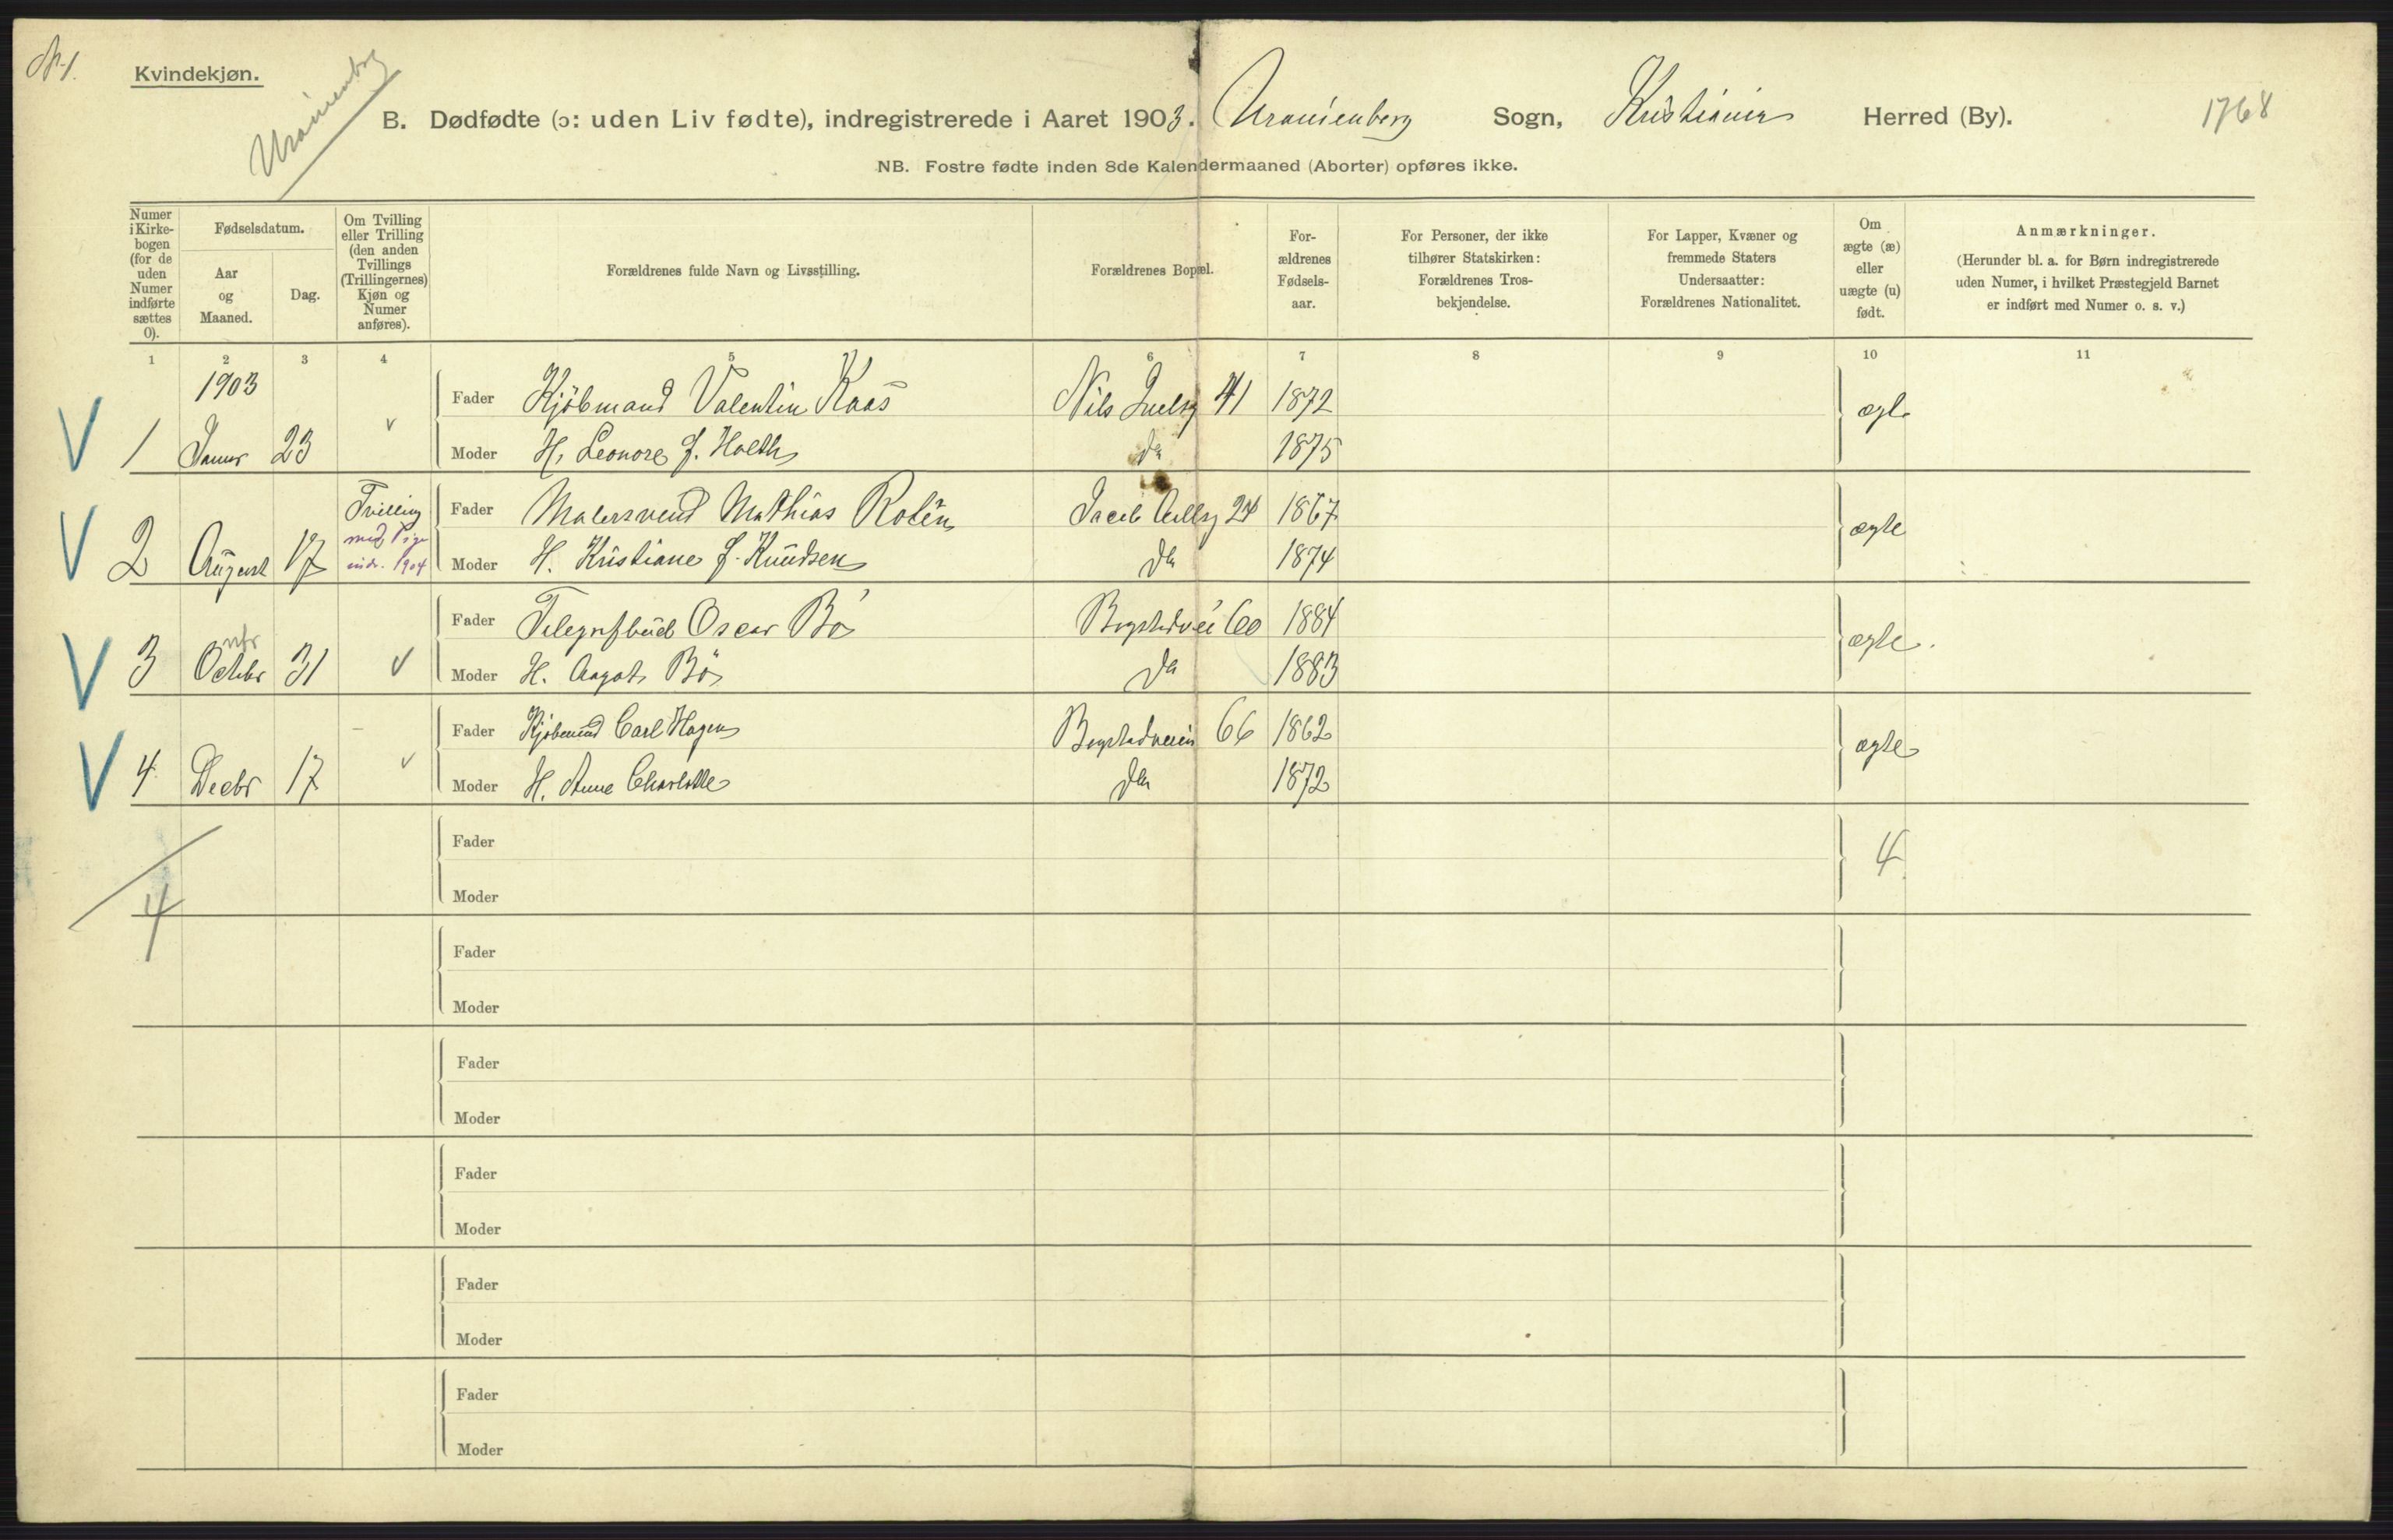 №1.
Kvindekjøn.
Uranienborg
B. Dødfødte (ɔ: uden Liv fødte), indregistrerede i Aaret 1903. Uranienborg Sogn, Kristiania Herred (By).
1768
NB. Fostre fødte inden 8de Kalendermaaned (Aborter) opføres ikke.
Numer i Kirkebogen (for de uden Numer indførte sættes 0).
Fødselsdatum.
Aar og Maaned.
Dag.
Om Tvilling eller Trilling (den anden Tvillings (Trillingernes) Kjøn og Numer anføres).
Forældrenes fulde Navn og Livsstilling.
Forældrenes Bopæl.
For-ældrenes Fødsels-aar.
For Personer, der ikke tilhører Statskirken: Forældrenes Tros-bekjendelse.
For Lapper, Kvæner og fremmede Staters Undersaatter: Forældrenes Nationalitet.
Om ægte (æ) eller uægte (u) født.
Anmærkninger.
(Herunder bl. a. for Børn indregistrerede uden Numer, i hvilket Præstegjeld Barnet er indført med Numer o. s. v.)
1 2 3 4 5 6 7 8 9 10 11
1903
Fader Kjöbmand Valentin Kaas Nils Juelsg 41 1872 ægte
V 1 Januar 23 v Moder H. Leonore f. Holth do 1875
Tvilling Fader Malersvend Mathias Rolén Jacob Aallsg 24 1867 ægte
med Pige
V 2 August 17 indr. 1904 Moder H. Kristiane f. Knudsen do 1874
Fader Telegrafbud Oscar Bö Bogstadvei 60 1884 ægte.
V 3 Octbr 31 v Moder H. Aagot Bö do 1883
Fader Kjöbmand Carl Hagen Bogstadveien 66 1862 ægte
V 4 Decbr 17 v Moder H. Anne Charlotte do 1872
Fader 4
Moder
4
Fader
Moder
Fader
Moder
Fader
Moder
Fader
Moder
Fader
Moder